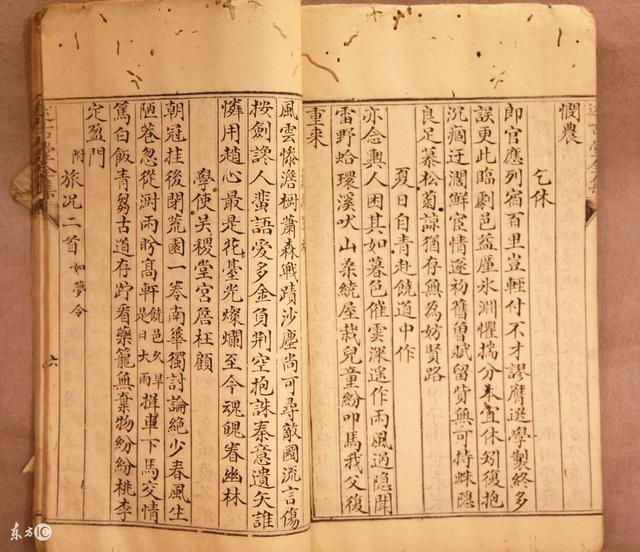 憫農
乞休
郎官應列宿百里豈輕付不才謬膺選學製終多
誤更此臨劇邑益厪氷淵懼揣分本宜休矧復抱
沉痼迂濶鮮宦情遂初舊曾賦留貲無可持蛛隱
良足慕松菊諒猶存無為妨賢路
夏日自青赴饒道中作
亦念輿人困其如暮色催雲深遙作雨風過隱聞
雷野蛤環溪吠山桑統屋栽兒童紛叩馬我父復
重來
風雲慘澹樹蕭森戰蹟沙塵尚可尋敵國流言傷
按劍讒人蜚語愛多金負荆空抱誅秦意遺矢誰
憐用趙心最是花臺光燦爛至今魂魄眷幽林
學使吴稷堂宫詹枉顧
朝冠挂後閉荒園一卷南華獨討論絶少春風生
陋巷忽從澍雨盼高軒饒邑久旱是日大雨揖車下馬交情
篤白飯青芻古道存貯看藥籠無棄物紛紛桃李
定盈門
附旅况二首如夢令
六
东方IC